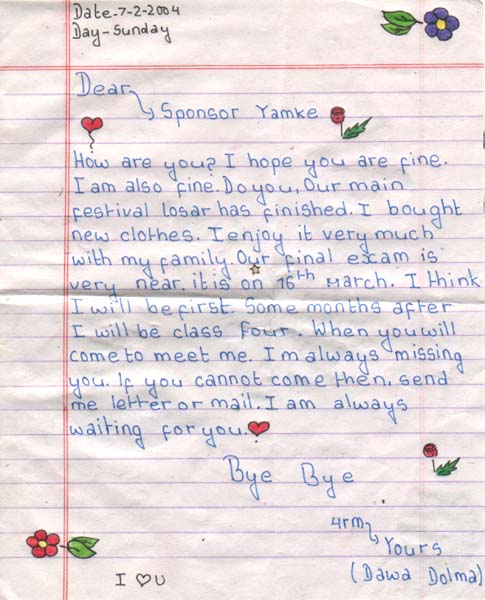 Date-7-2-2004
Day-Sunday
Dear
Sponsor Yamke
How are you? I hope you are fine.
I am also fine. Do you, Our main
festival losar has finished. I bought
new clothes. I enjoy it very much
with my family. Our final exam is
very near. it is on 16th March. I think
I will be first. Some months after
I will be class four. When you will
come to meet me. I'm always missing
you. If you cannot come then, send
me letter or mail. I am always
waiting for you.
Bye Bye
4rm
Yours
(Dawa Dolma)
I ♡ U